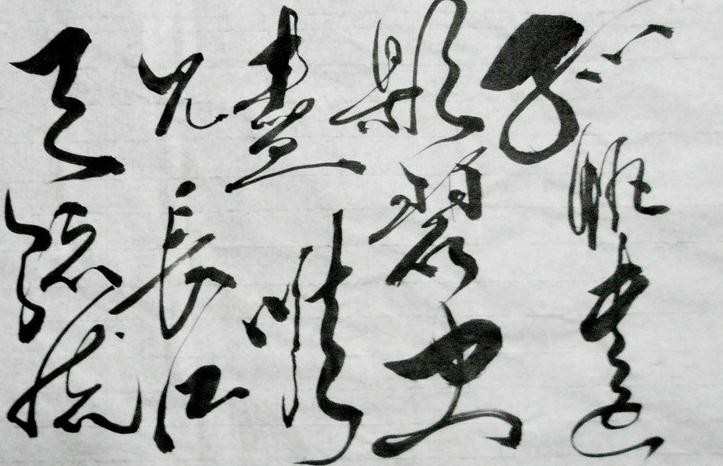 孤帆遠
影碧空
盡唯
見長江
天際流